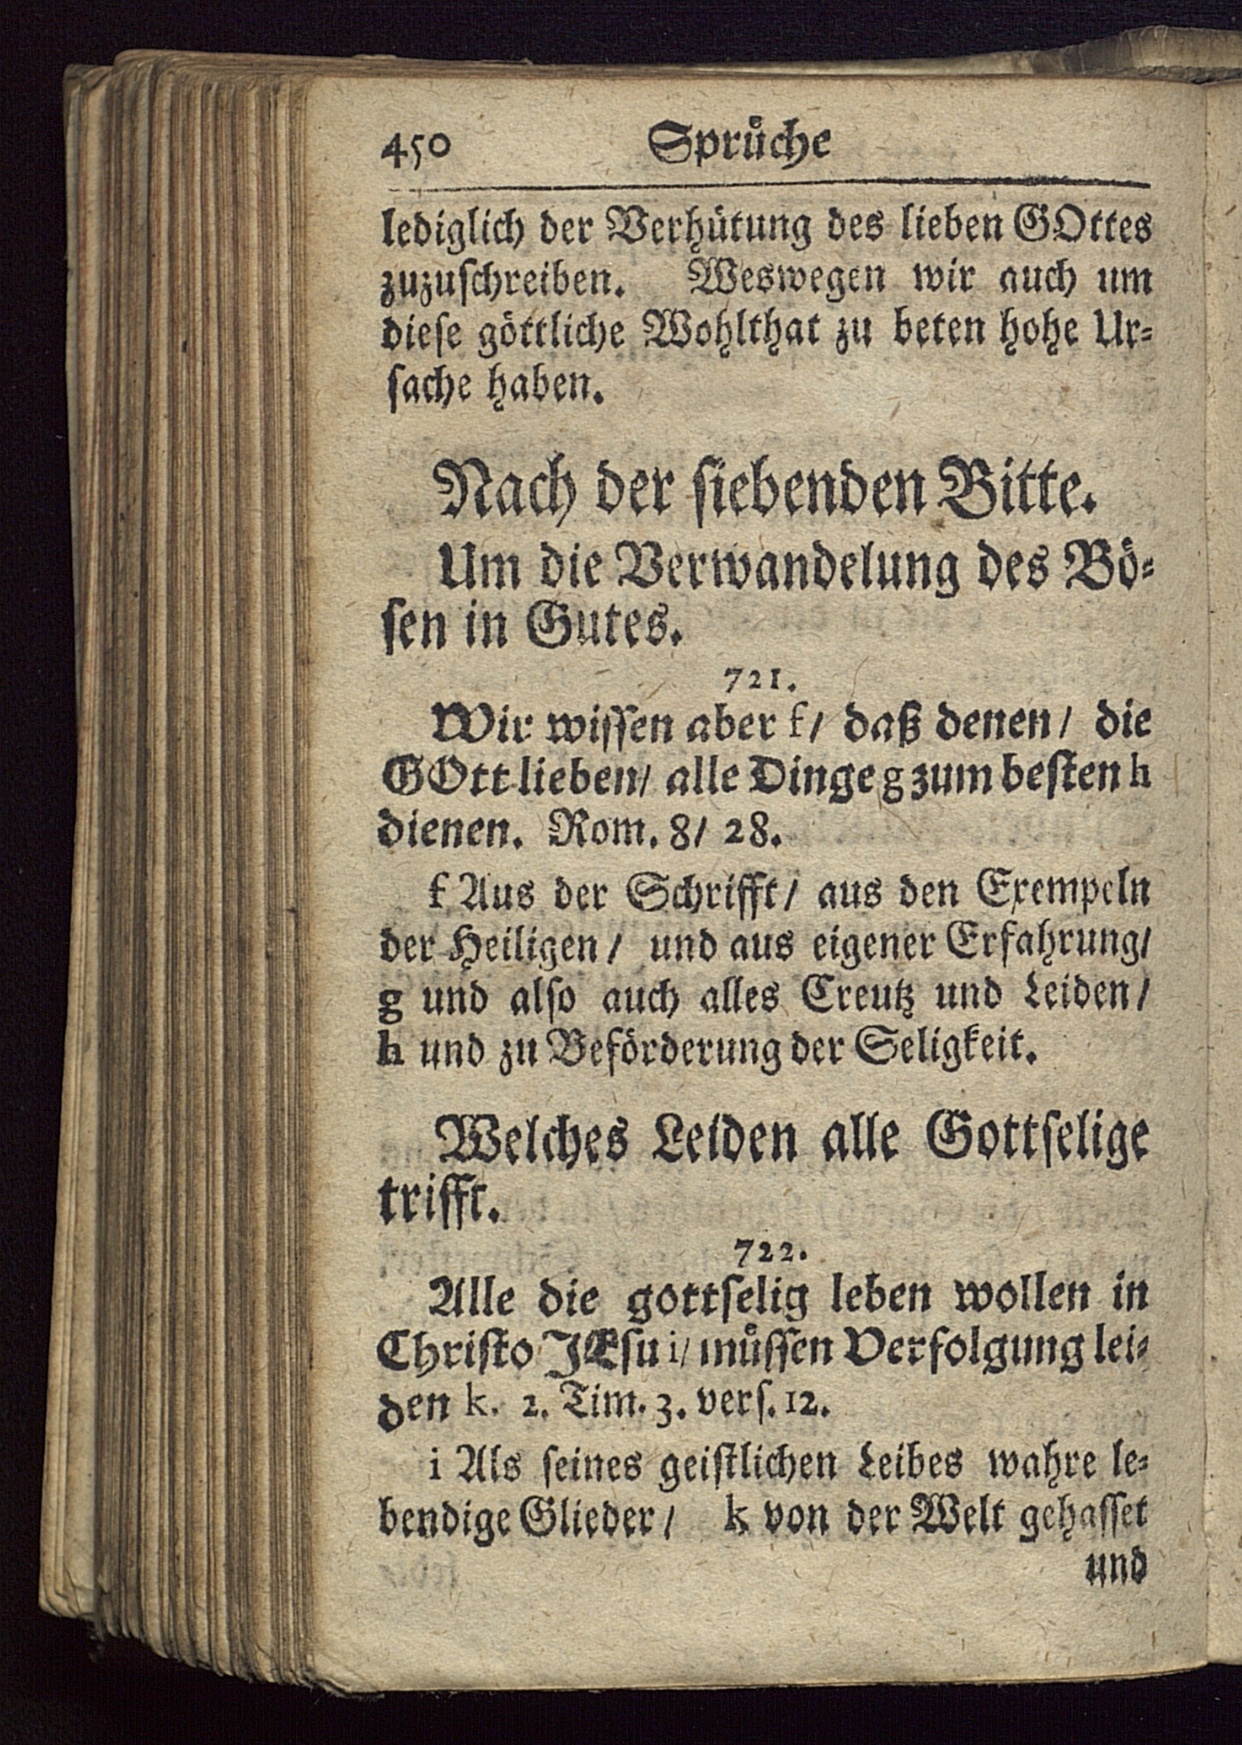 450 Sprüche
lediglich der Verhütung des lieben GOttes
zuzuschreiben. Weswegen wir auch um
diese göttliche Wohlthat zu beten hohe Ur-
sache haben.
Nach der siebenden Bitte.
Um die Verwandelung des Bö-
sen in Gutes.
721.
Wir wissen aber f/ daß denen/ die
GOtt lieben/ alle Dinge g zum besten h
dienen. Rom. 8/ 28.
f Aus der Schrifft/ aus den Exempeln
der Heiligen/ und aus eigener Erfahrung/
g und also auch alles Creutz und Leiden/
h und zu Beförderung der Seligkeit.
Welches Leiden alle Gottselige
trifft.
722.
Alle die gottselig leben wollen in
Christo JEsu i/ müssen Verfolgung lei-
den k. 2. Tim. 3. vers. 12.
i Als seines geistlichen Leibes wahre le-
bendige Glieder/ k von der Welt gehasset
und